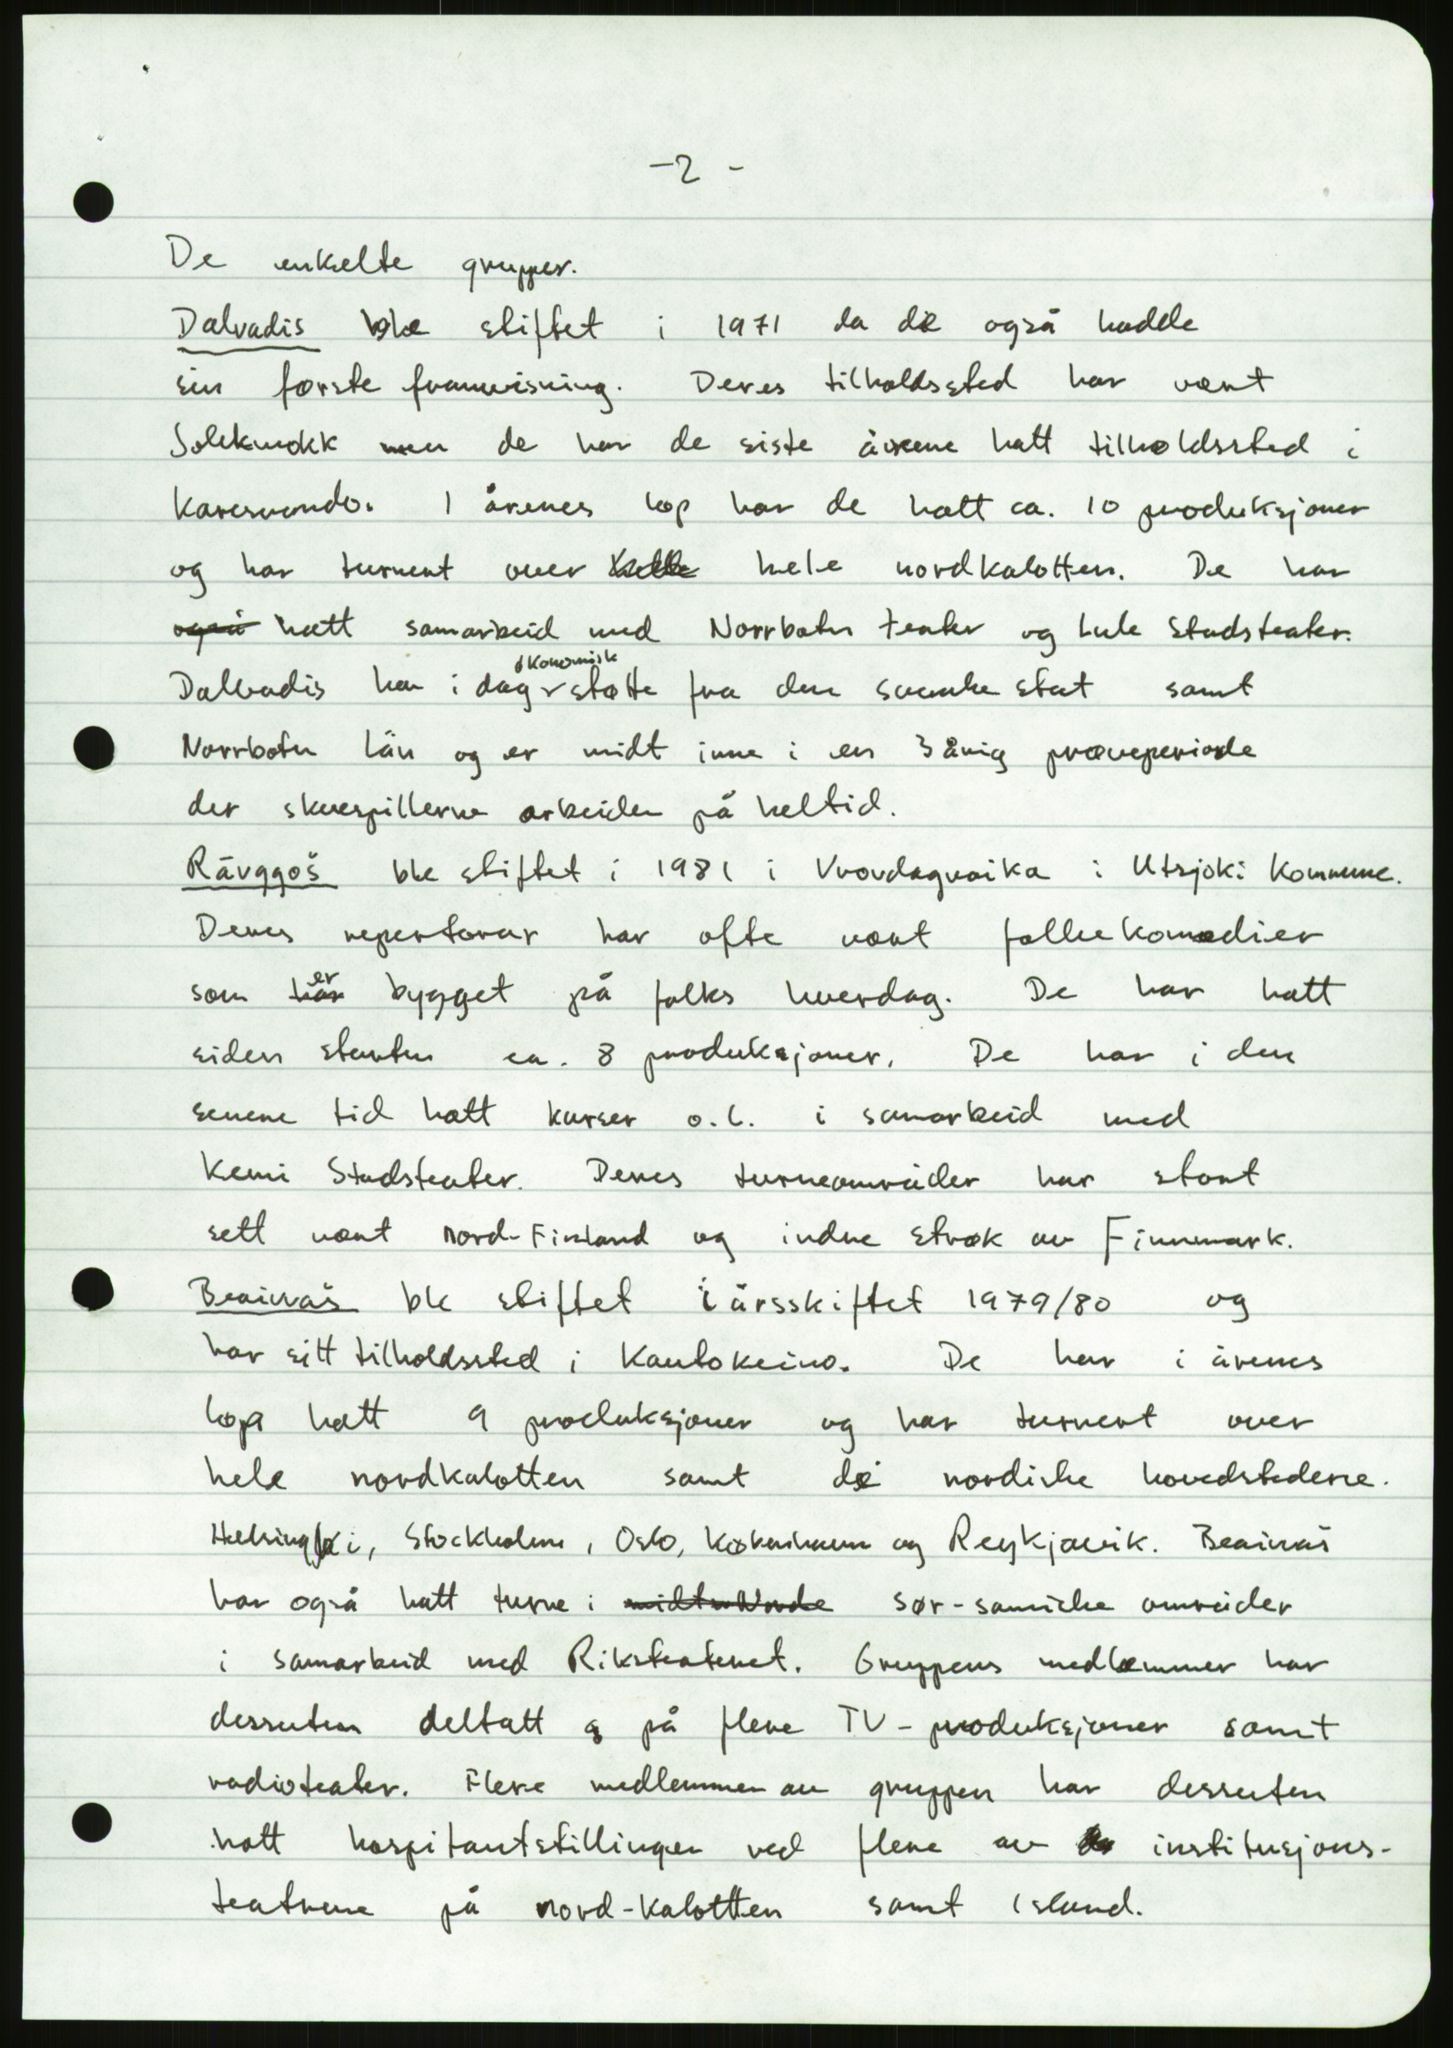 -2-
De enkelte grupper.
Dalvadis ble stiftet i 1971 da de også hadde
sin første framvisning. Deres tilholdssted har vært
Jokkmokk men de har de siste årene hatt tilholdssted i
Karesuando. I årenes løp har de hatt ca. 10 produksjoner
og har turnert over hele nordkalotten. De har
også hatt samarbeid med Norrbotn teater og Lule Stadsteater.
økonomisk
Dalvadis har i dag støtte fra den svenske stat samt
Norrbotn län og er midt inne i en 3 årig prøveperiode
der skuespillerne arbeider på heltid.
Rávggoš ble stiftet i 1981 i Vuovdaguoika i Utsjoki Kommune.
Deres repertoar har ofte vært folkekomedier
som er bygget på folks hverdag. De har hatt
siden starten ca. 8 produksjoner. De har i den
senere tid hatt kurser o.l. i samarbeid med
Kemi Stadsteater. Deres turneområder har stort
sett vært Nord-Finland og indre strøk av Finnmark.
Beaivváš ble stiftet i årsskiftet 1979/80 og
har sitt tilholdssted i Kautokeino. De har i årenes
løp hatt 9 produksjoner og har turnert over
hele nordkalotten samt de nordiske hovedstedene.
Helsingki, Stockholm, Oslo, København og Reykjavik. Beaivváš
har også hatt turne i sør-samiske områder
i samarbeid med Riksteateret. Gruppens medlemmer har
dessuten deltatt på flere TV-produksjoner samt
radioteater. Flere medlemmer av gruppen har dessuten
hatt hospitantstillinger ved flere av institusjons-
teatrene på nord-kalotten samt Island.